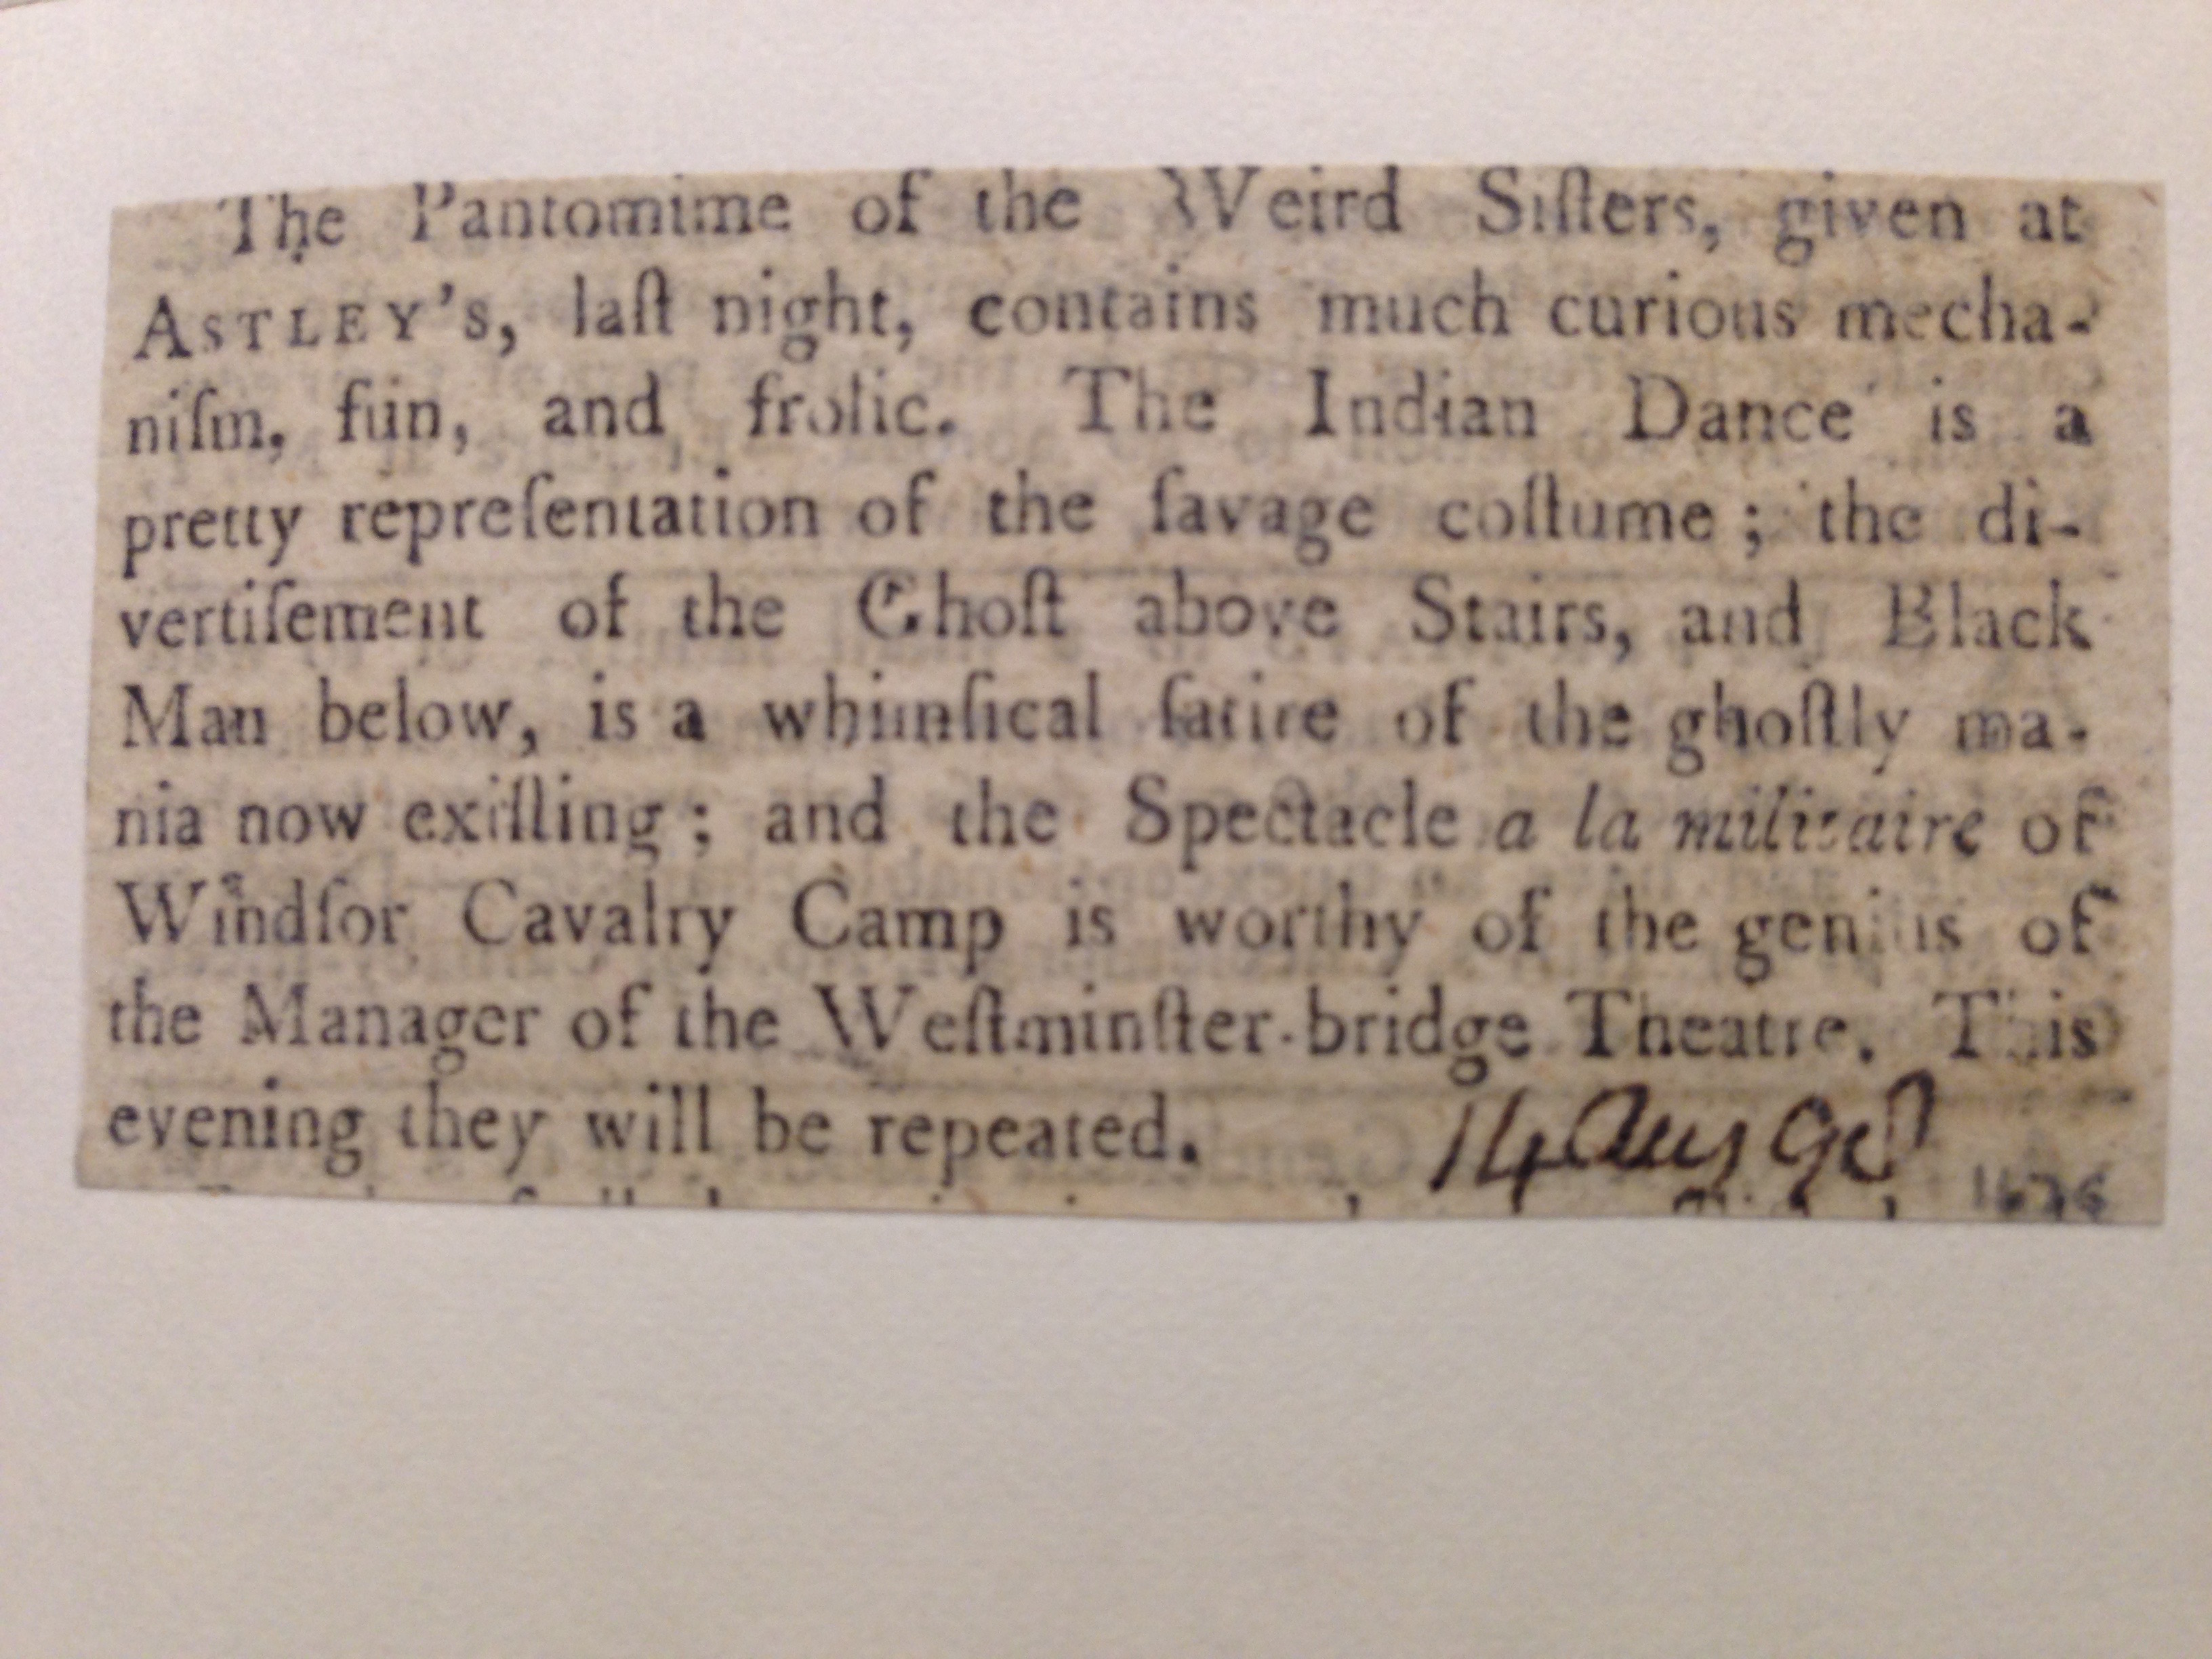 The Pantomime of the Weird Siſters, given at
ASTLEY's, laſt night, contains much curious mecha-
niſm, fun, and frolic. The Indian Dance is a
pretty repreſentation of the ſavage coſtume; the di-
vertiſement of the Ghoſt above Stairs, and Black
Man below, is a whimſical ſatire of the ghoſtly ma-
nia now exiſting; and the Spectacle a la militaire of
Windſor Cavalry Camp is worthy of the genius of
the Manager of the Weſtminſter-bridge Theatre. This
evening they will be repeated.
14 Aug 98